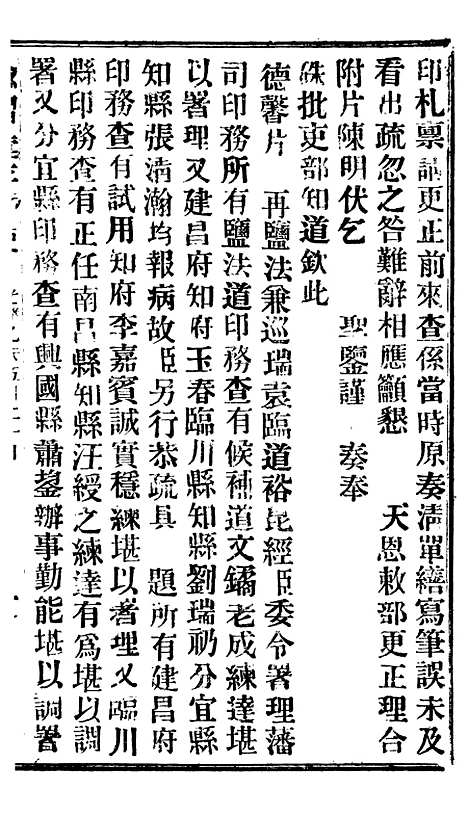 印札稟請更正前來查係當時原奏清單繕寫筆誤未及
看出疏忽之咎難辭相應籲懇 天恩敕部更正理合
附片陳明伏乞 聖鑒謹 奏奉
硃批吏部知道欽此
德馨片 再鹽法兼巡瑞袁臨道裕昆經臣委令署理藩
司印務所有鹽法道印務查有候補道文鐍老成練達堪
以署理又建昌府知府玉春臨川縣知縣劉瑞礽分宜縣
知縣張清瀚均報病故臣另行恭疏具 題所有建昌府
印務查有試用知府李嘉賓誠實穩練堪以署理又臨川
縣印務查有正任南昌縣知縣汪綬之練達有為堪以調
署又分宜縣印務查有興國縣蕭鋆辦事勤能堪以調署